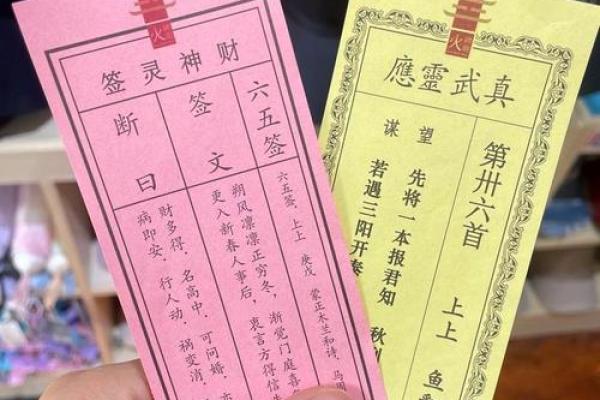 财神灵签
六五签
签文
断曰
六五签，上上 庚戌 蒙正木兰和诗，马周
朔风凛凛正穷冬，渐觉门庭喜
更入新春人事后，衷言方得信
财多得，名高中，可问婚，
病即安，行人动，祸变消，
火
真武靈應
第卅六首
上上 鱼
謀望
先将一本报君知
若遇三阳开泰
秋
火